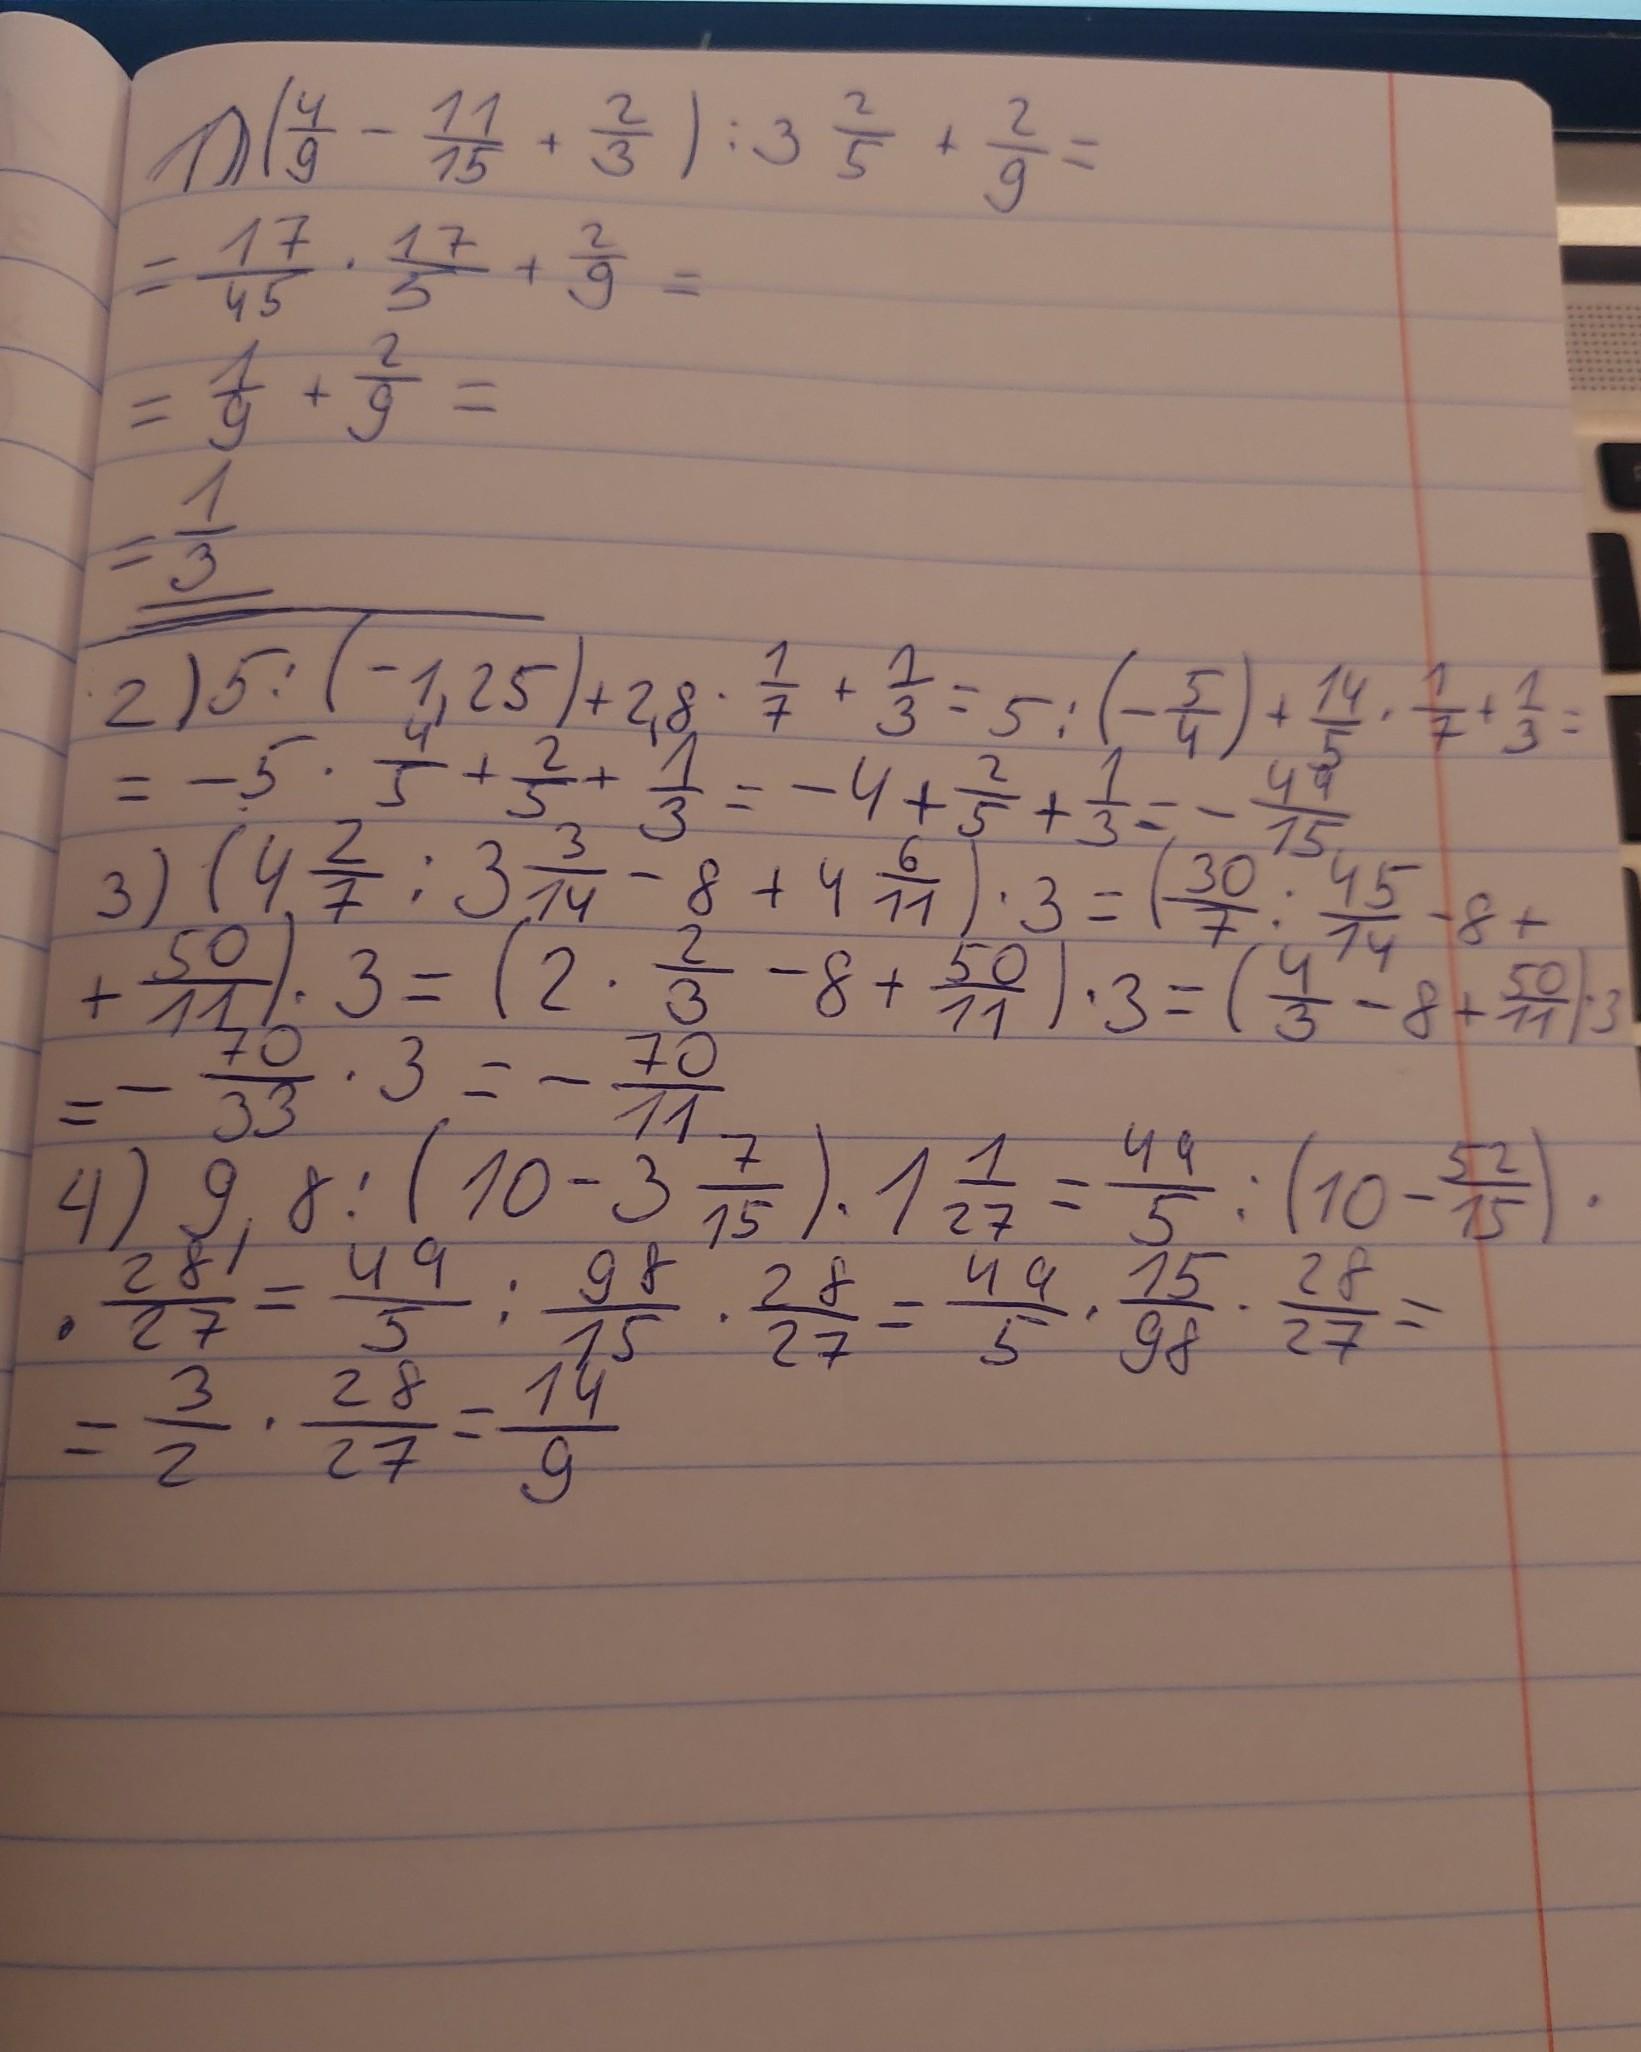 1) (4/9 - 11/15 + 2/3) : 3 2/5 + 2/9 =
= 17/45 · 17/5 + 2/9 =
= 1/9 + 2/9 =
= 1/3
2) 5 : (-1,25) + 2,8 · 1/7 + 1/3 = 5 : (-5/4) + 14/5 · 1/7 + 1/3 =
= -5 · 4/5 + 2/5 + 1/3 = -4 + 2/5 + 1/3 = -49/15
3) (4 2/7 : 3 3/14 - 8 + 4 6/11) · 3 = (30/7 : 45/14 - 8 +
+ 50/11) · 3 = (2 · 2/3 - 8 + 50/11) · 3 = (4/3 - 8 + 50/11) · 3
= -70/33 · 3 = -70/11
4) 9,8 : (10 - 3 7/15) · 1 1/27 = 49/5 : (10 - 52/15) ·
· 28/27 = 49/5 : 98/15 · 28/27 = 49/5 · 15/98 · 28/27 =
= 3/2 · 28/27 = 14/9